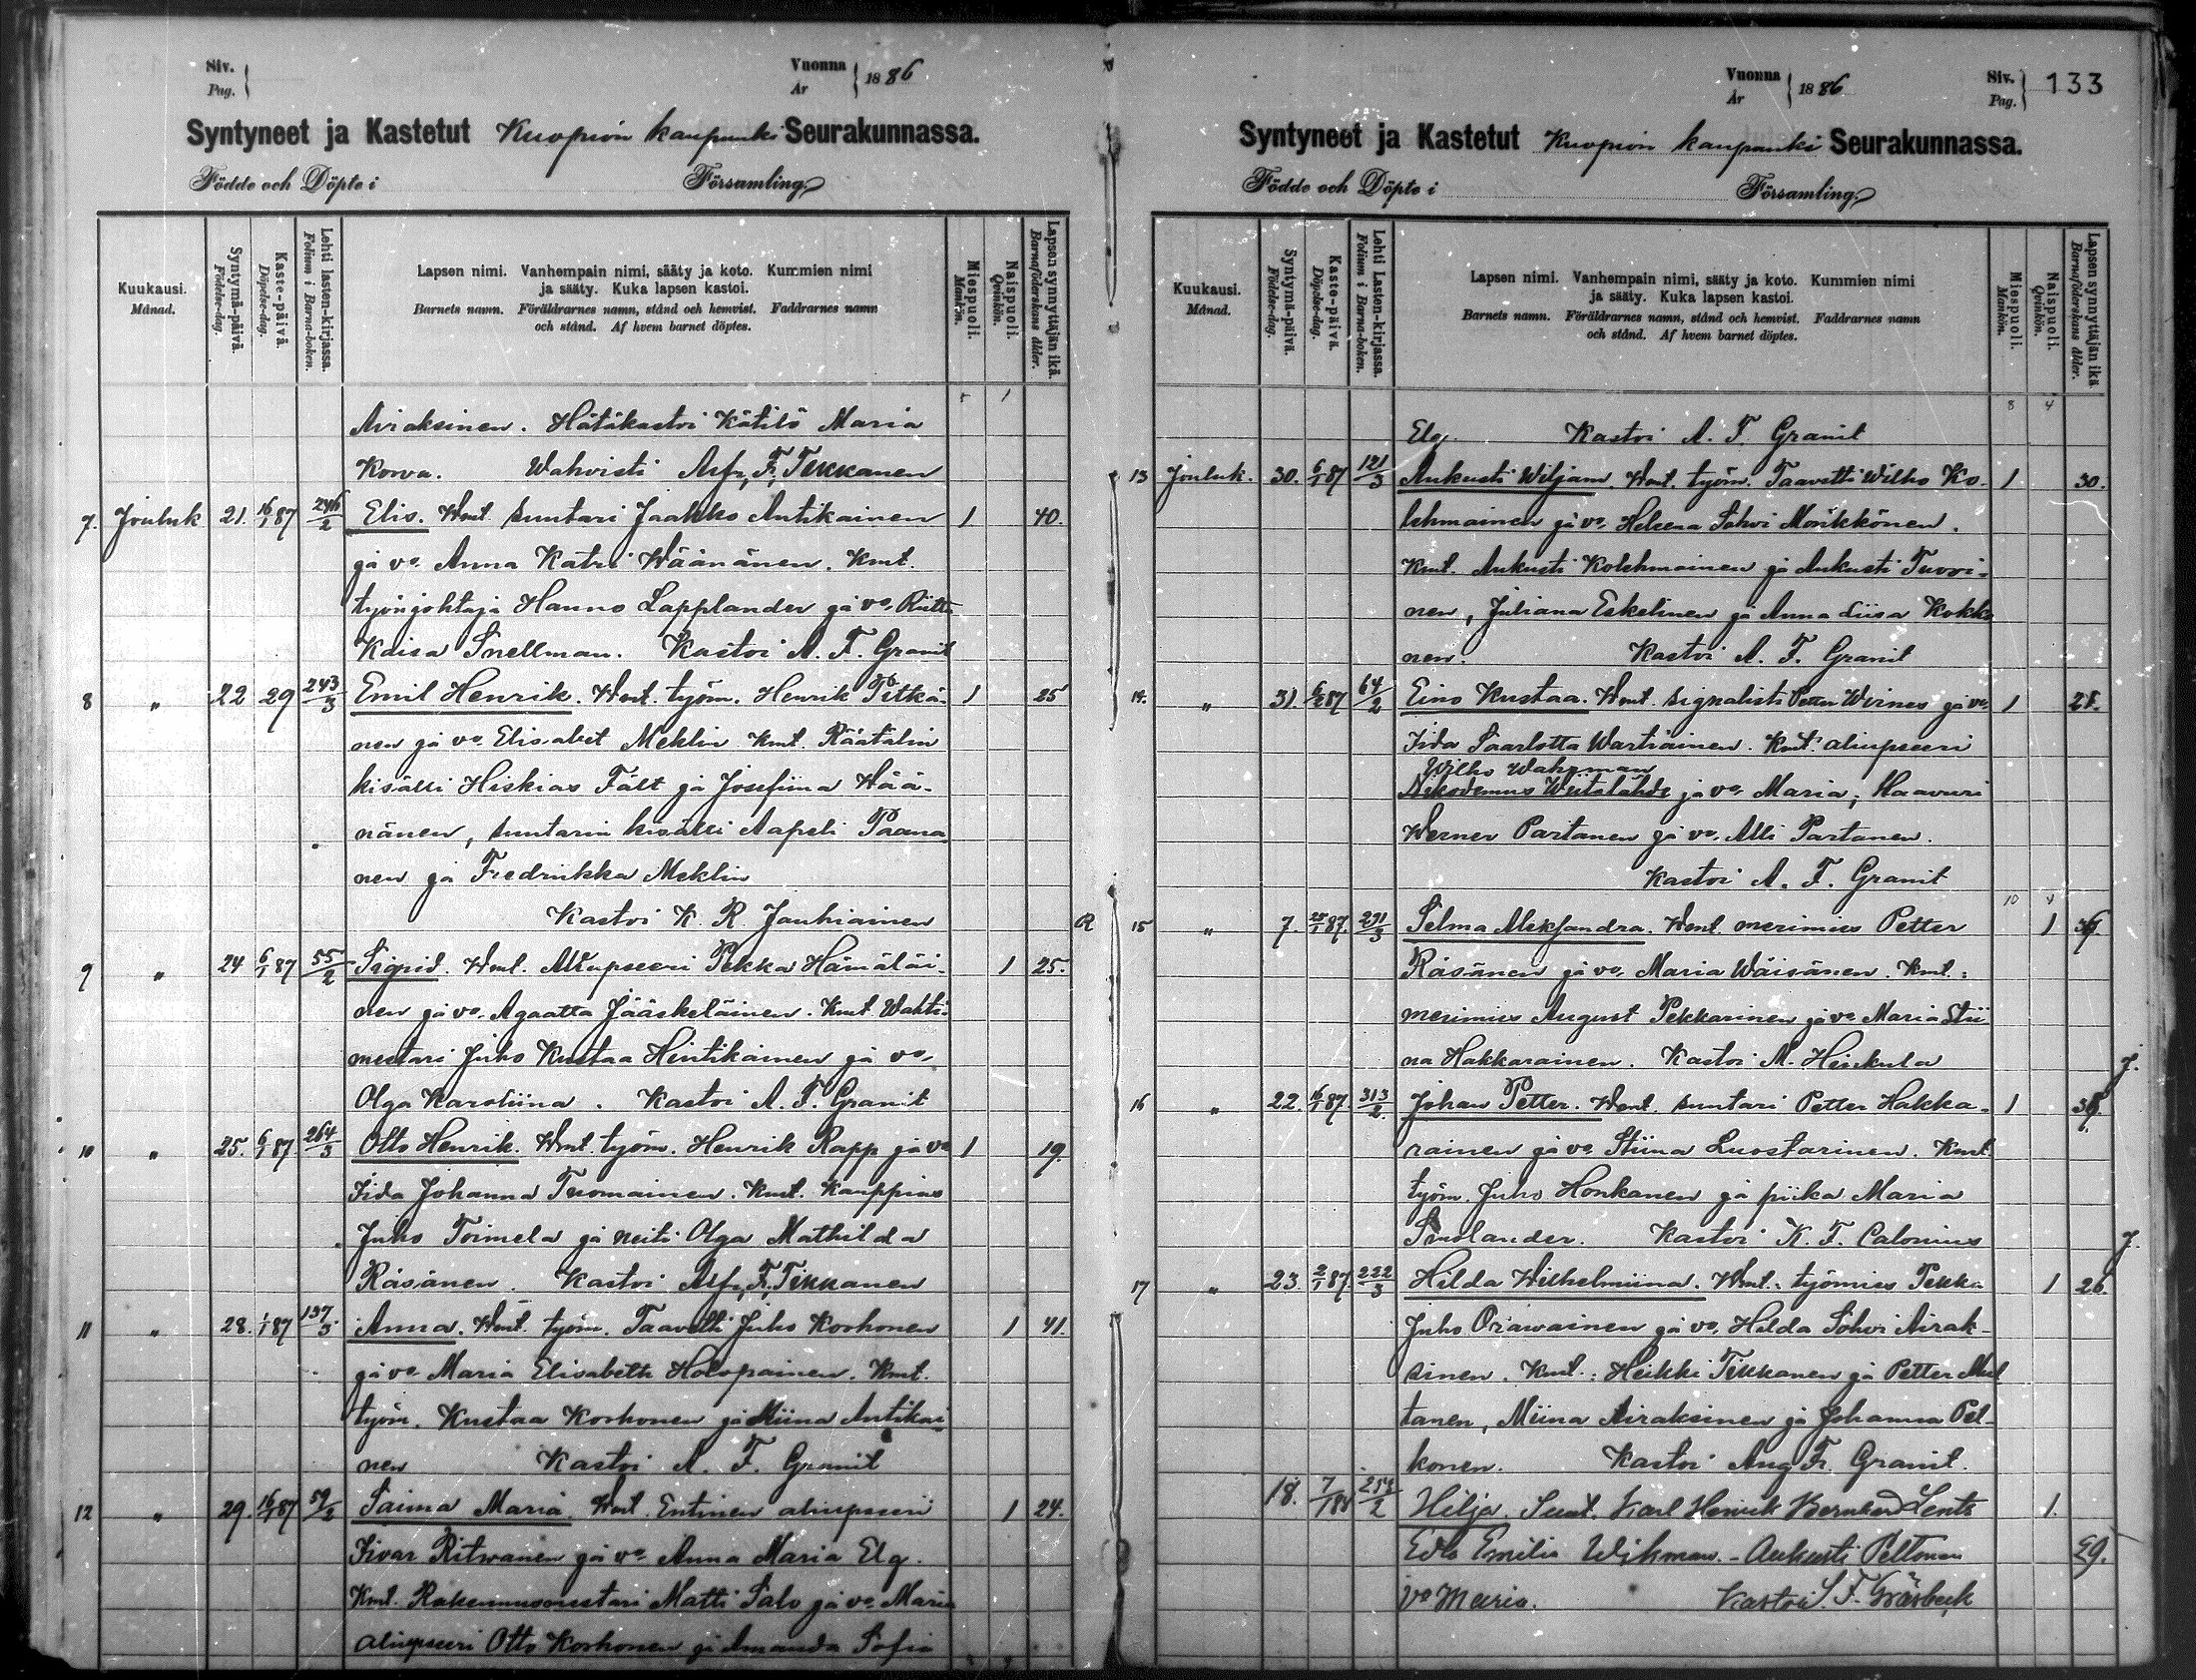 Siv.
Pag.
Vuonna
År
1886
Syntyneet ja Kastetut Kuopion kaupunki Seurakunnassa.
Födde och Döpte i Församling.
Kuukausi.
Månad.
Syntymä-päivä.
Födelse-dag.
Kaste-päivä.
Döpelse-dag.
Lehti lasten-kirjassa.
Folium i Barna-boken.
Lapsen nimi. Vanhempain nimi, sääty ja koto. Kummien nimi
ja sääty. Kuka lapsen kastoi.
Barnets namn. Föräldrarnes namn, stånd och hemvist. Faddrarnes namn
och stånd. Af hvem barnet döptes.
Miespuoli.
Mankön.
Naispuoli.
Qvinkön.
Lapsen synnyttäjän ikä.
Barnaföderskans ålder.
Airaksinen. Hätäkastoi Kätilö Maria
Korva. Wahvisti Alfr. F. Tikkanen
7. Jouluk 21. 16/1 87 246/2 Elis. Wmt. suutari Jaakko Antikainen 1 40.
ja vo. Anna Katri Wäänänen. Kmt.
työnjohtaja Hanno Lapplander ja vo. Riitta
Kaisa Snellman. Kastoi A. F. Granit
8 " 22 29 243/3 Emil Henrik. Wmt. työm. Henrik Pitkä- 1 25
nen ja vo. Elisabet Meklin Kmt. Räätälin
kisälli Hiskias Fält ja Josefiina Wää-
nänen, suutarin kisälli Aapeli Paana
nen ja Fredriikka Meklin
Kastoi K. R. Jauhiainen
9 " 24 6/1 87 55/2 Sigrid. Wmt. Aliupseeri Pekka Hämäläi- 1 25.
nen ja vo. Agaatta Jääskeläinen. Kmt Wahti-
mestari Juho Kustaa Hintikainen ja vo.
Olga Karoliina. Kastoi A. F. Granit
10 " 25. 6/1 87. 264/3 Otto Henrik. Wmt. työm. Henrik Rapp ja vo 1 19.
Iida Johanna Tuomainen. Kmt. Kauppias
Juho Toimela ja neiti Olga Mathilda
Räsänen. Kastoi Alfr. F. Tikkanen
11 " 28. 1/1 87 137/3 Anna. Wmt. työm. Taavetti Juho Korhonen 1 41.
ja vo. Maria Elisabeth Holopainen. Kmt.
työm. Kustaa Korhonen ja Miina Antikai
nen Kastoi A. F. Granit
12 " 29. 16/1 87 59/2 Saima Maria. Wmt. Entinen aliupseeri 1 24.
Iivar Ritwanen ja vo. Anna Maria Elg.
Kmt. Rakennusmestari Matti Salo ja vo. Maria
aliupseeri Otto Korhonen ja Amanda Sofia
Vuonna
År
1886
Siv.
Pag.
133
Syntyneet ja Kastetut Kuopion kaupunki Seurakunnassa.
Födde och Döpte i Församling.
Kuukausi.
Månad.
Syntymä-päivä.
Födelse-dag.
Kaste-päivä.
Döpelse-dag.
Lehti Lasten-kirjassa.
Folium i Barna-boken.
Lapsen nimi. Vanhempain nimi, sääty ja koto. Kummien nimi
ja sääty. Kuka lapsen kastoi.
Barnets namn. Föräldrarnes namn, stånd och hemvist. Faddrarnes namn
och stånd. Af hvem barnet döptes.
Miespuoli.
Mankön.
Naispuoli.
Qvinkön.
Lapsen synnyttäjän ikä
Barnaföderskans ålder.
8 4
Elg. Kastoi A. F. Granit
13 Jouluk. 30. 6/1 87 121/3 Aukusti Wiljam. Wmt. työm. Taavetti Wilho Ko- 1 30.
lehmainen ja vo. Helena Sohvi Mönkkönen.
Kmt. Aukusti Kolehmainen ja Aukusti Tuovi-
nen, Juliana Eskelinen ja Anna Liisa Kokko
nen. Kastoi A. F. Granit
14. " 31. 87 64/2 Eino Kustaa. Wmt. signalisti Petter Wirnes ja vo. 1 28.
Iida Saarlotta Wartiainen. Kmt. aliupseeri
Wilho Wahrman
Nikodemus Wiitalahde ja vo. Maria; Haavuri
Werner Partanen ja vo. Alli Partanen.
Kastoi A. F. Granit
10 4
R 15 " 7. 25/1 87. 291/3 Selma Aleksandra. Wmt. merimies Petter 1 36.
Räsänen ja vo. Maria Wäisänen. Kmt.:
merimies August Pekkarinen ja vo Maria Stii
na Hakkarainen. Kastoi M. Heinkula
J.
16 " 22. 16/1 87. 313/2 Johan Petter. Wmt. suutari Petter Hakka- 1 38.
rainen ja vo Stiina Luostarinen. Kmt
työm. Juho Honkanen ja piika Maria
Smolander. Kastoi K. F. Calonius
J.
17 " 23. 2/1 87. 222/3 Hilda Wilhelmiina. Wmt.: työmies Pekka 1 26.
Juho Orawainen ja vo. Hilda Sohvi Airak-
sinen. Kmt.: Heikki Tikkanen ja Petter Mul
tanen, Miina Airaksinen ja Johanna Pel-
konen. Kastoi Aug Fr. Granit.
18. 7/1 88 254/2 Hilja. Suut. Karl Henrik Bernhard Lenti 1.
Edla Emilia Wikman. - Aukusti Peltonen 29.
vo Maria. Kastoi S. F. Gräsbeck